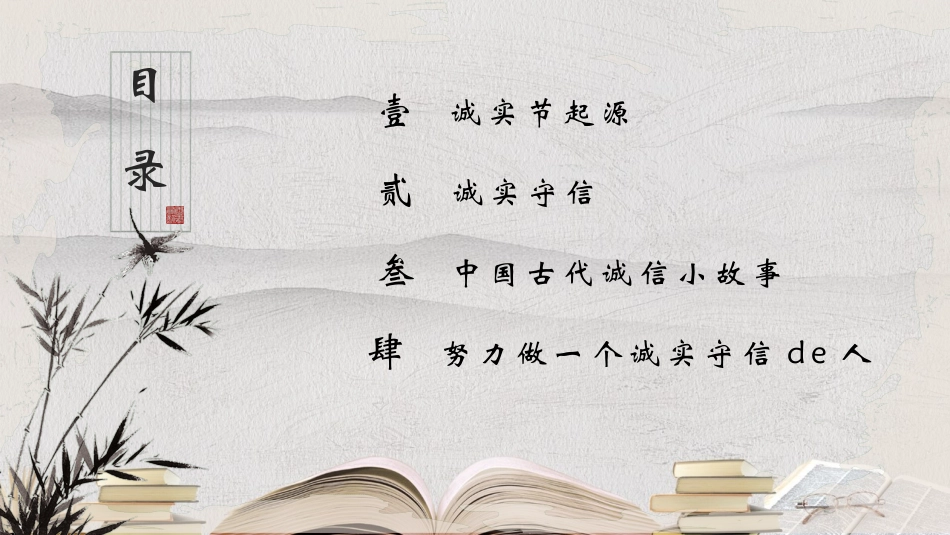 目录
壹 诚实节起源
贰 诚实守信
叁 中国古代诚信小故事
肆 努力做一个诚实守信de人